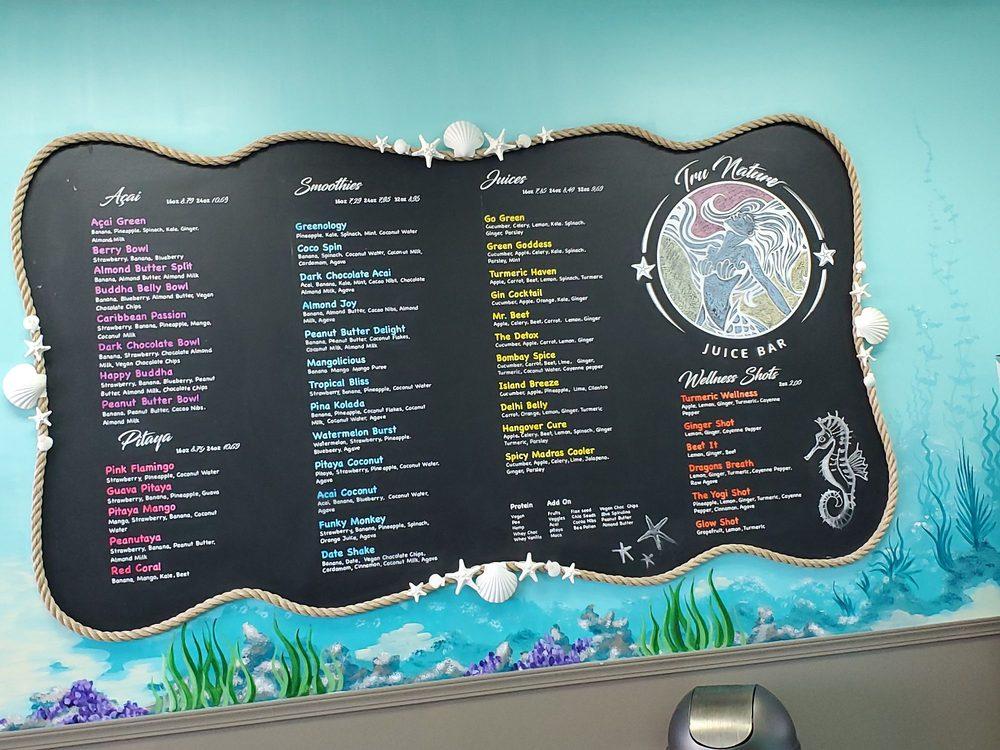 Açai
16oz 8.79 24oz 10.69
Açai Green
Banana, Pineapple, Spinach, Kale, Ginger,
Almond Milk
Berry Bowl
Strawberry, Banana, Blueberry
Almond Butter Split
Banana, Almond Butter, Almond Milk
Buddha Belly Bowl
Banana, Blueberry, Almond Butter, Vegan
Chocolate Chips
Caribbean Passion
Strawberry, Banana, Pineapple, Mango,
Coconut Milk
Dark Chocolate Bowl
Banana, Strawberry, Chocolate Almond
Milk, Vegan Chocolate Chips
Happy Buddha
Strawberry, Banana, Blueberry, Peanut
Butter, Almond Milk, Chocolate Chips
Peanut Butter Bowl
Banana, Peanut Butter, Cacao Nibs,
Almond Milk
Pitaya
16oz 8.79 24oz 10.69
Pink Flamingo
Strawberry, Pineapple, Coconut Water
Guava Pitaya
Strawberry, Banana, Pineapple, Guava
Pitaya Mango
Mango, Strawberry, Banana, Coconut
Water
Peanutaya
Strawberry, Banana, Peanut Butter,
Almond Milk
Red Coral
Banana, Mango, Kale, Beet
Smoothies
16oz 7.29 24oz 7.95 32oz 8.95
Greenology
Pineapple, Kale, Spinach, Mint, Coconut Water
Coco Spin
Banana, Spinach, Coconut Water, Coconut Milk,
Cardamom, Agave
Dark Chocolate Acai
Acai, Banana, Kale, Mint, Cacao Nibs, Chocolate
Almond Milk, Agave
Almond Joy
Banana, Almond Butter, Cacao Nibs, Almond
Milk, Agave
Peanut Butter Delight
Banana, Peanut Butter, Coconut Flakes,
Coconut Milk, Almond Milk
Mangolicious
Banana Mango Mango Puree
Tropical Bliss
Strawberry, Banana, Pineapple, Coconut Water
Pina Kolada
Banana, Pineapple, Coconut Flakes, Coconut
Milk, Coconut Water, Agave
Watermelon Burst
Watermelon, Strawberry, Pineapple,
Blueberry, Agave
Pitaya Coconut
Pitaya, Strawberry, Pineapple, Coconut Water,
Agave
Acai Coconut
Acai, Banana, Blueberry, Coconut Water,
Agave
Funky Monkey
Strawberry, Banana, Pineapple, Spinach,
Orange Juice, Agave
Date Shake
Banana, Date, Vegan Chocolate Chips,
Cardamom, Cinnamon, Coconut Milk, Agave
Juices
16oz 7.85 24oz 8.49 32oz 9.69
Go Green
Cucumber, Celery, Lemon, Kale, Spinach,
Ginger, Parsley
Green Goddess
Cucumber, Apple, Celery, Kale, Spinach,
Parsley, Mint
Turmeric Haven
Apple, Carrot, Beet, Lemon, Spinach, Turmeric
Gin Cocktail
Cucumber, Apple, Orange, Kale, Ginger
Mr. Beet
Apple, Celery, Beet, Carrot, Lemon, Ginger
The Detox
Cucumber, Apple, Carrot, Lemon, Ginger
Bombay Spice
Cucumber, Carrot, Beet, Lime, Ginger,
Turmeric, Coconut Water, Cayenne pepper
Island Breeze
Cucumber, Apple, Pineapple, Lime, Cilantro
Delhi Belly
Carrot, Orange, Lemon, Ginger, Turmeric
Hangover Cure
Apple, Celery, Beet, Lemon, Spinach, Ginger
Turmeric, Parsley
Spicy Madras Cooler
Cucumber, Apple, Celery, Lime, Jalapeno,
Ginger, Parsley
Protein
Vegan
Pea
Hemp
Whey Choc
Whey Vanilla
Add On
Fruits Flax seed Vegan Choc Chips
Veggies Chia Seeds Blue Spirulina
Acai Cacao Nibs Peanut Butter
pitaya Bee Pollen Almond Butter
Maca
Tru Nature
JUICE BAR
Wellness Shots
2oz 2.00
Turmeric Wellness
Apple, Lemon, Ginger, Turmeric, Cayenne
Pepper
Ginger Shot
Lemon, Ginger, Cayenne Pepper
Beet It
Lemon, Ginger, Beet
Dragons Breath
Lemon, Ginger, Turmeric, Cayenne Pepper,
Raw Agave
The Yogi Shot
Pineapple, Lemon, Ginger, Turmeric, Cayenne
Pepper, Cinnamon, Agave
Glow Shot
Grapefruit, Lemon, Turmeric